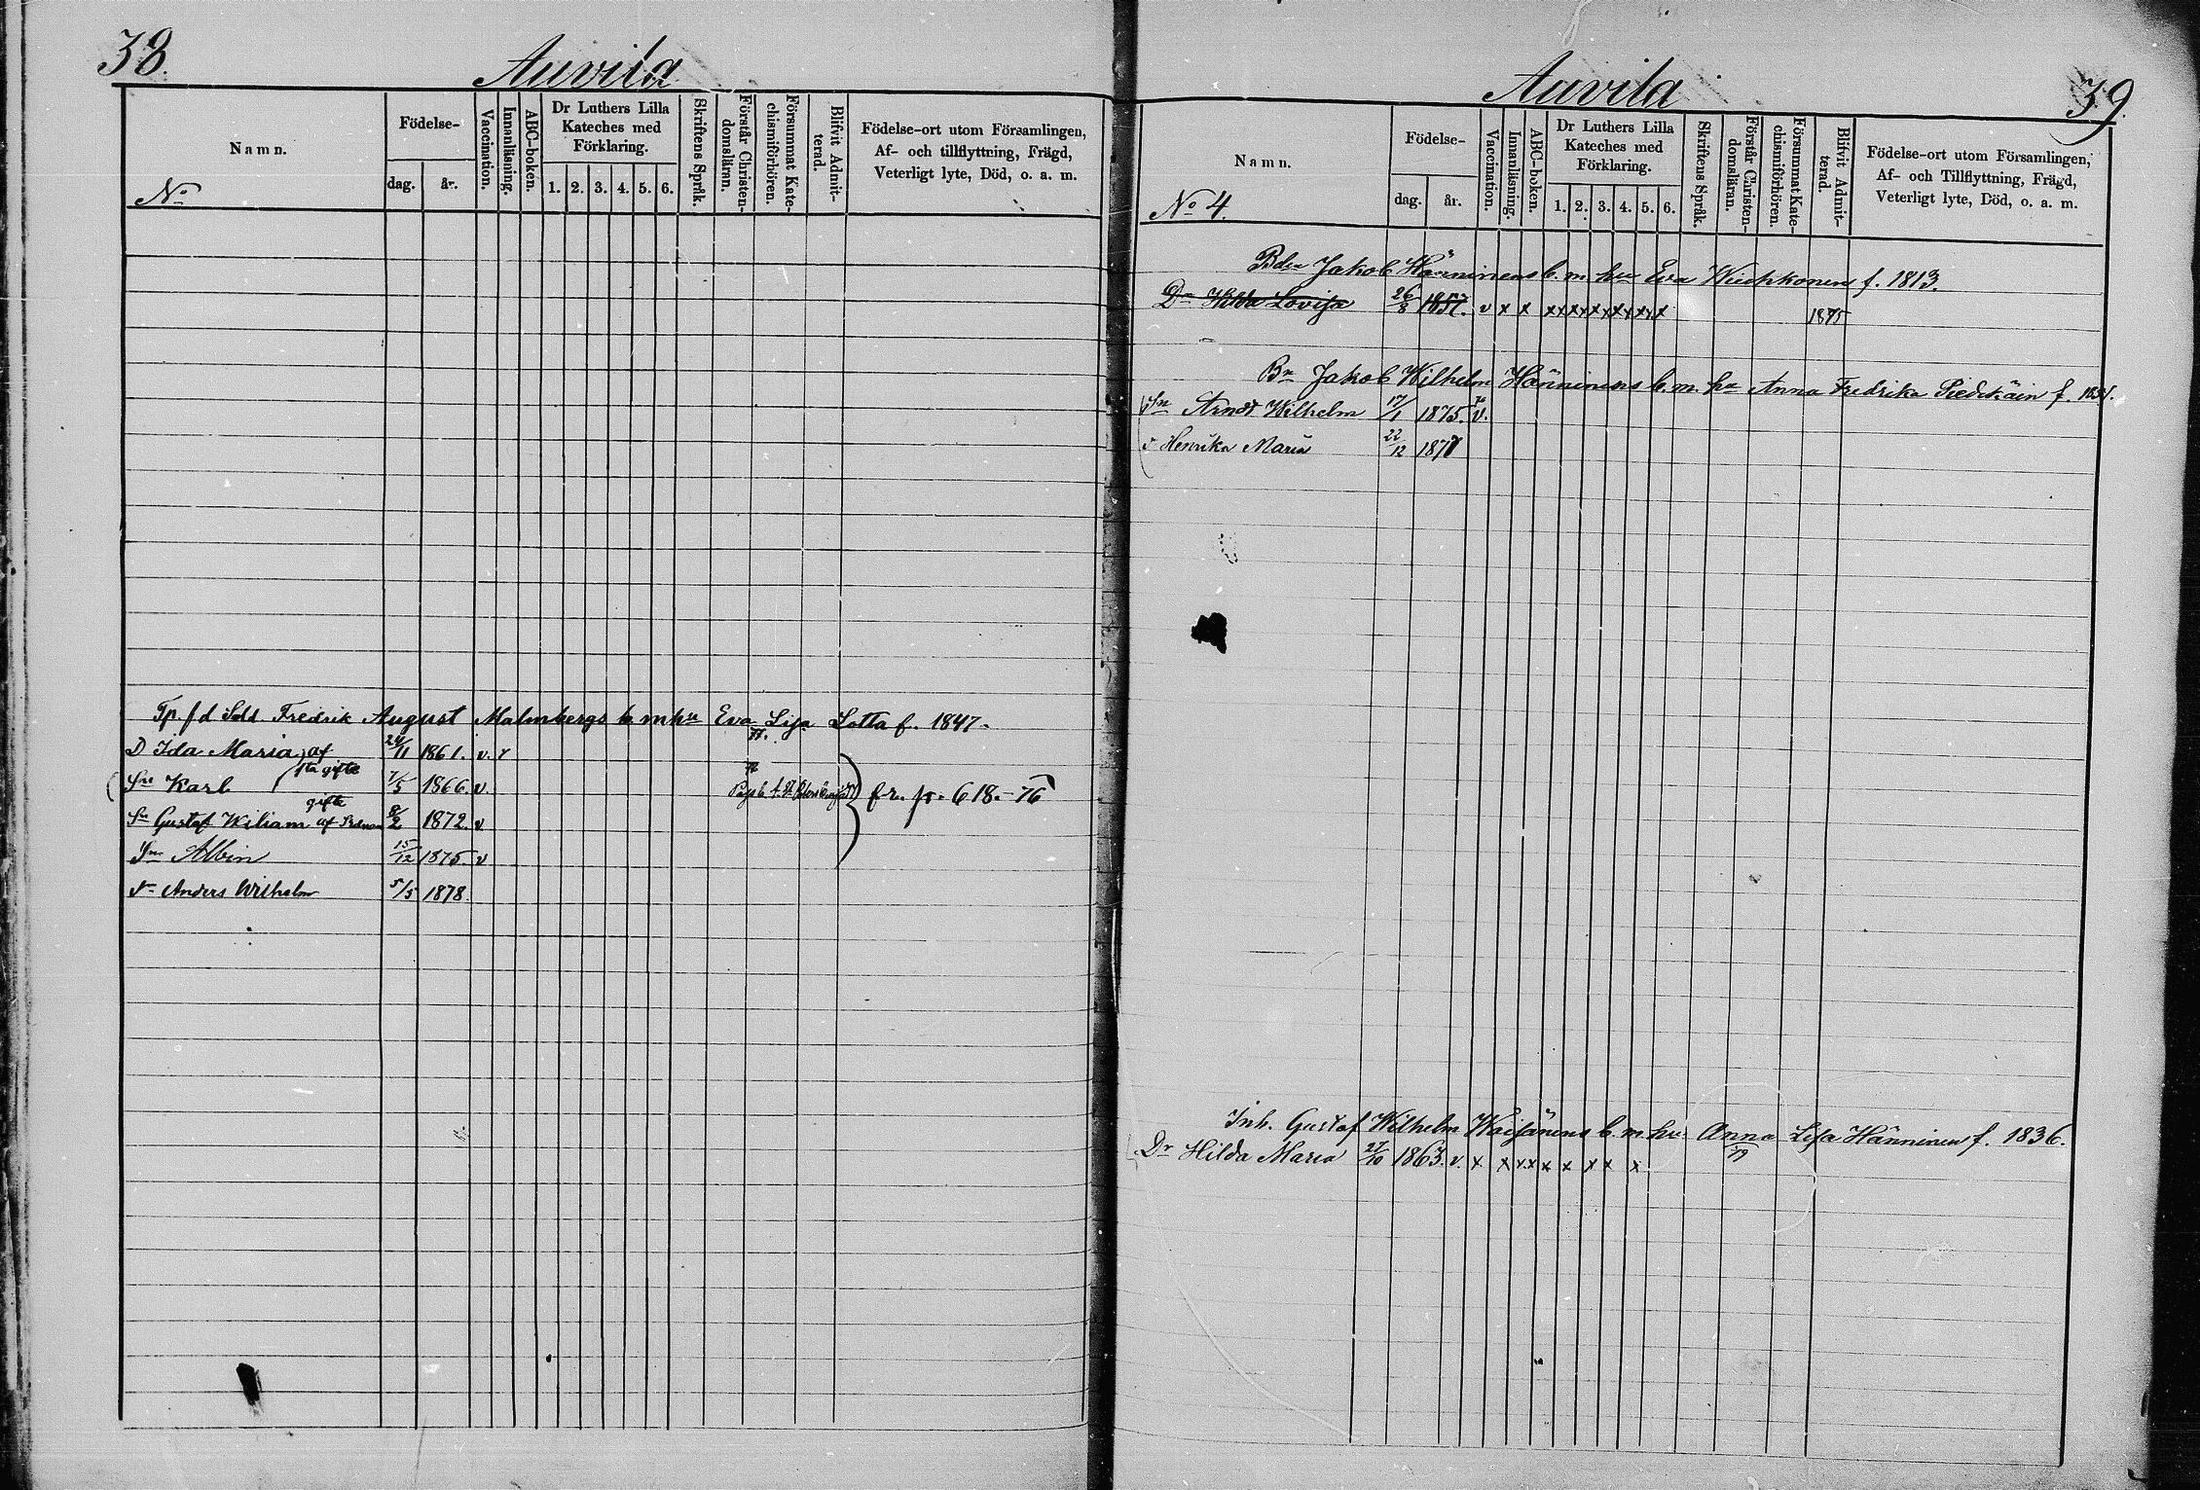 38.
Auvila
Namn.
No
Födelse-
dag.
år.
Vaccination.
Innanläsning.
ABC-boken.
Dr Luthers Lilla
Kateches med
Förklaring.
1. 2. 3. 4. 5. 6.
Skriftens Språk.
Förstår Christen-
domsläran.
Försummat Kate-
chismiförhören.
Blifvit Admit-
terad.
Födelse-ort utom Församlingen,
Af- och tillflyttning, Frägd,
Veterligt lyte, Död, o. a. m.
Tp. f d Sold Fredrik August Malmbergs b. m hu Eva Lisa Lotta f. 1847.
77.
D Ida Maria af 24/11 1861. v. x
1sta gifte
Sn Karl 7/5 1866. v.
fr. p. 618.-76
gifte
Sn Gustaf Wiliam af 8/2 1872. v
Sn Albin 15/12 1875. v
Sn Anders Wilhelm 5/5 1878.
39.
Auvila
Namn.
No 4.
Födelse-
dag.
år.
Vaccination.
Innanläsning.
ABC-boken.
Dr Luthers Lilla
Kateches med
Förklaring.
1. 2. 3. 4. 5. 6.
Skriftens Språk.
Förstår Christen-
domsläran.
Försummat Kate-
chismiförhören.
Blifvit Admit-
terad.
Födelse-ort utom Församlingen,
Af- och Tillflyttning, Frägd,
Veterligt lyte, Död, o. a. m.
Jakob Hänninens b. m. hu Eva f. 1813.
Dr Hilda Lovisa 26/8 1857. v x x xxxxxxxxxxx 1875
Bn Jakob Wilhelm Hänninens b. m. hu Anna Fredrika f.
Sn Arndt Wilhelm 17/1 1875. v.
Henrika Maria 22/12 1877
Inh. Gustaf Wilhelm Woisänens b. m. hu Anna Lisa Hänninen f. 1836.
79
Dr Hilda Maria 27/10 1863. v. x x x x x x x x x